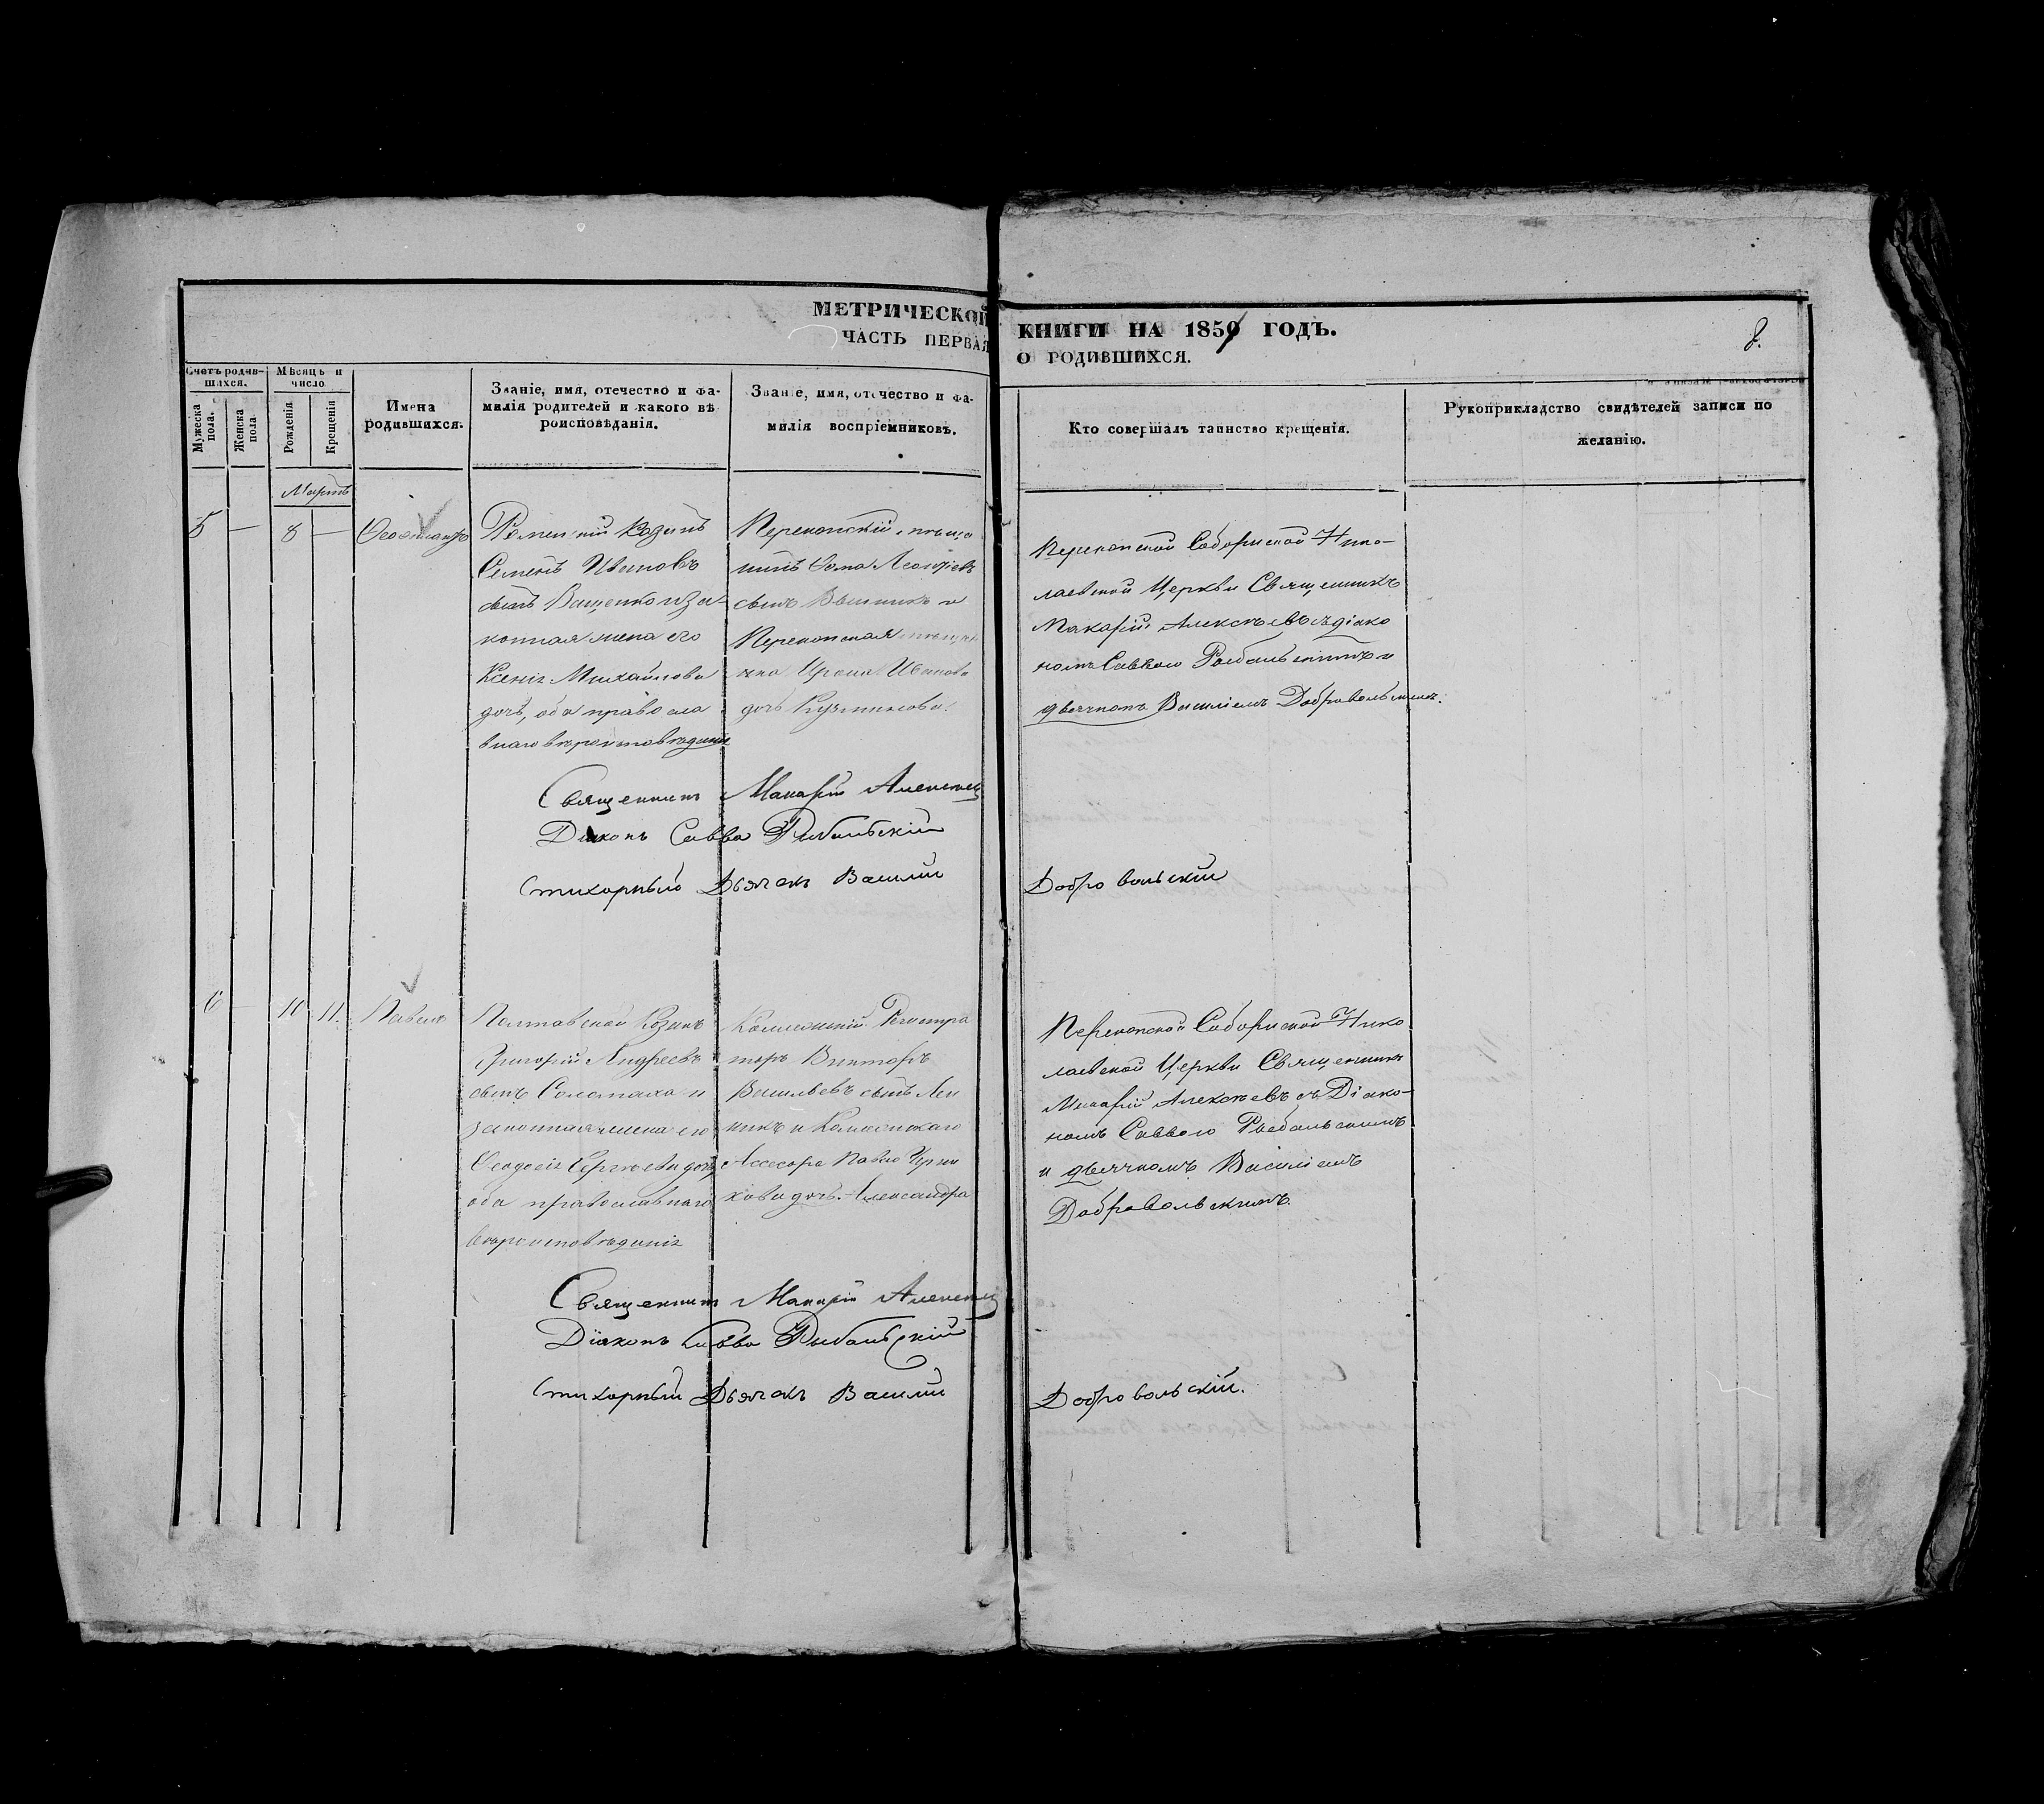 МЕТРИЧЕСКОЙ КНИГИ НА 1851 ГОДЪ.
ЧАСТЬ ПЕРВАЯ О РОДИВШИХСЯ.
8.
Счетъ родив-
шихся.
Мужеска пола.
Женска пола
Мѣсяцъ и
число
Рожденія
Крещенія
Имена
родившихся.
Званіе, имя, отечество и фа-
милія родителей и какого вѣ
роисповѣданія.
Званіе, имя, отечество и фа-
милія воспріемниковъ.
Кто совершалъ таинство крещенія.
Рукоприкладство свидѣтелей записи по
желанію.
Мартъ
5 — 8 —
Роменскій Казакъ
Семенъ Ивановъ
сынъ Ващенко и за
конная жена его
Ксенія Михайлова
дочь, оба правосла
внаго вѣроисповѣданія
Перекопскій мѣща
нинъ Фома
сынъ и
Перекопская мѣщан
ка Ирина Иванова
дочь
Перекопской Соборной Нико-
лаевской Церкви Священникъ
Макарій Алексѣевъ съ діако
номъ Саввою Рыбальскимъ и
дьячкомъ Василіемъ Добровольскимъ.
Священникъ Макарій
Діаконъ Савва Рыбальскій
Стихарный Дьячекъ Василий Добровольскій
6 — 10 11.
Павелъ
Полтавской Козакъ
Григорій Андреевъ
сынъ Соломаха и
законная жена его
Феодосія Сергѣева дочь,
оба православнаго
вѣроисповѣданія
Коллежскій Регистра
торъ Викторъ
Васильевъ сынъ
и Коллежскаго
Ассесора Павла
дочь Александра
Перекопской Соборной Нико
лаевской Церкви Священникъ
Макарій Алексѣевъ съ Діако-
номъ Саввою Рыбальскимъ
и дьячкомъ Василіемъ
Добровольскимъ.
Священникъ Макарій
Діаконъ Савва Рыбальскій
Стихарный Дьячекъ Василий Добровольскій.